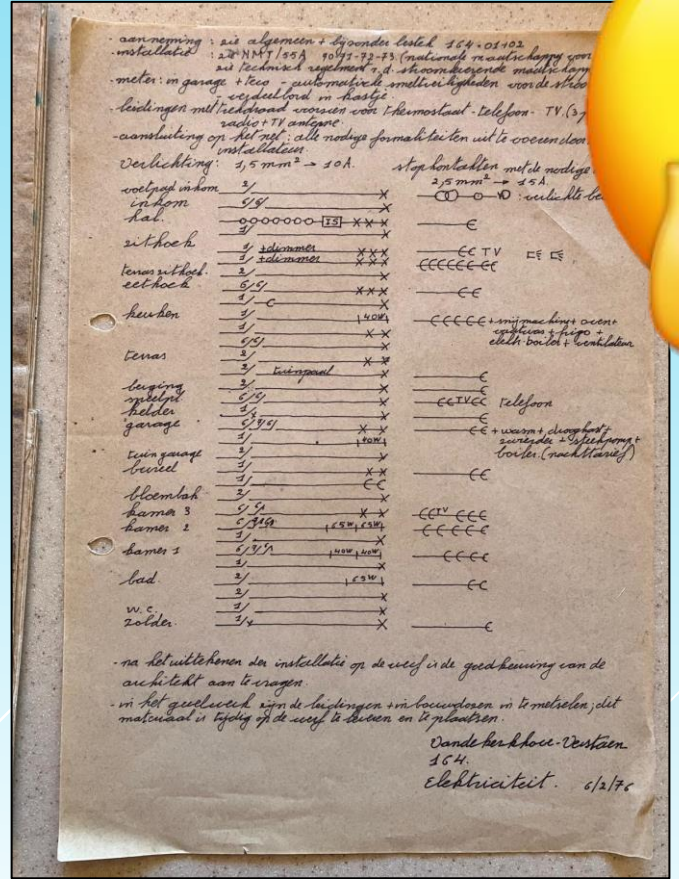 - aanneming : zie algemeen + bijzonder bestek 164.01+02
- installatie : zie NMT/55A 90-91-72-73 (nationale maatschappij voor
zie technisch reglement v.d. stroomleverende maatschap
- meter : in garage + teco - automatische smeltveiligheden voor de stroo
- verdeelbord in kastje
- leidingen met trekdraad voorzien voor thermostaat - telefoon - TV. (
radio + TV antenne.
- aansluiting op het net : alle nodige formaliteiten uit te voeren door
installateur.
Verlichting : 1,5 mm² → 10A. stopkontakten met de nodige
2,5 mm² → 15A.
voetpad inkom 2/ x : verlichte be
inkom 6/6/ x
hal. 25 x x x
1/ x
zithoek 1/ +dimmer x x x TV
1/ +dimmer x x x
terras zithoek. 2/ x
eethoek 6/6/ x x x
1/ x
keuken 1/ 40W + snijmachine + oven +
1/ x x vaatwas + frigo +
6/6/ x elektr. boiler + ventilateur
terras 2/ x x
2/ tuinpaal x
berging 2/ x
speelpl 6/6/ x TV telefoon
kelder 1/ x
garage 6/3/6/ x x + wasm + droogkast +
1/ 40W + steekpomp +
tuin garage 2/ x boiler. (nachttarief)
bureel 1/ x
1/ x x
bloembak 2/ x
kamer 3 x x TV
kamer 2 65W 65W
1/ x
kamer 1 40W 40W
1/ x
bad. 2/ 65W
2/ x
w.c. 1/ x
zolder. x
- na het uittekenen der installatie op de werf is de goedkeuring van de
architekt aan te vragen.
- in het gevelwerk zijn de leidingen + inbouwdozen in te metselen; dit
materiaal is tijdig op de werf te leveren en te plaatsen.
Vandekerkhove-Verstaen
164.
Elektriciteit. 6/2/76